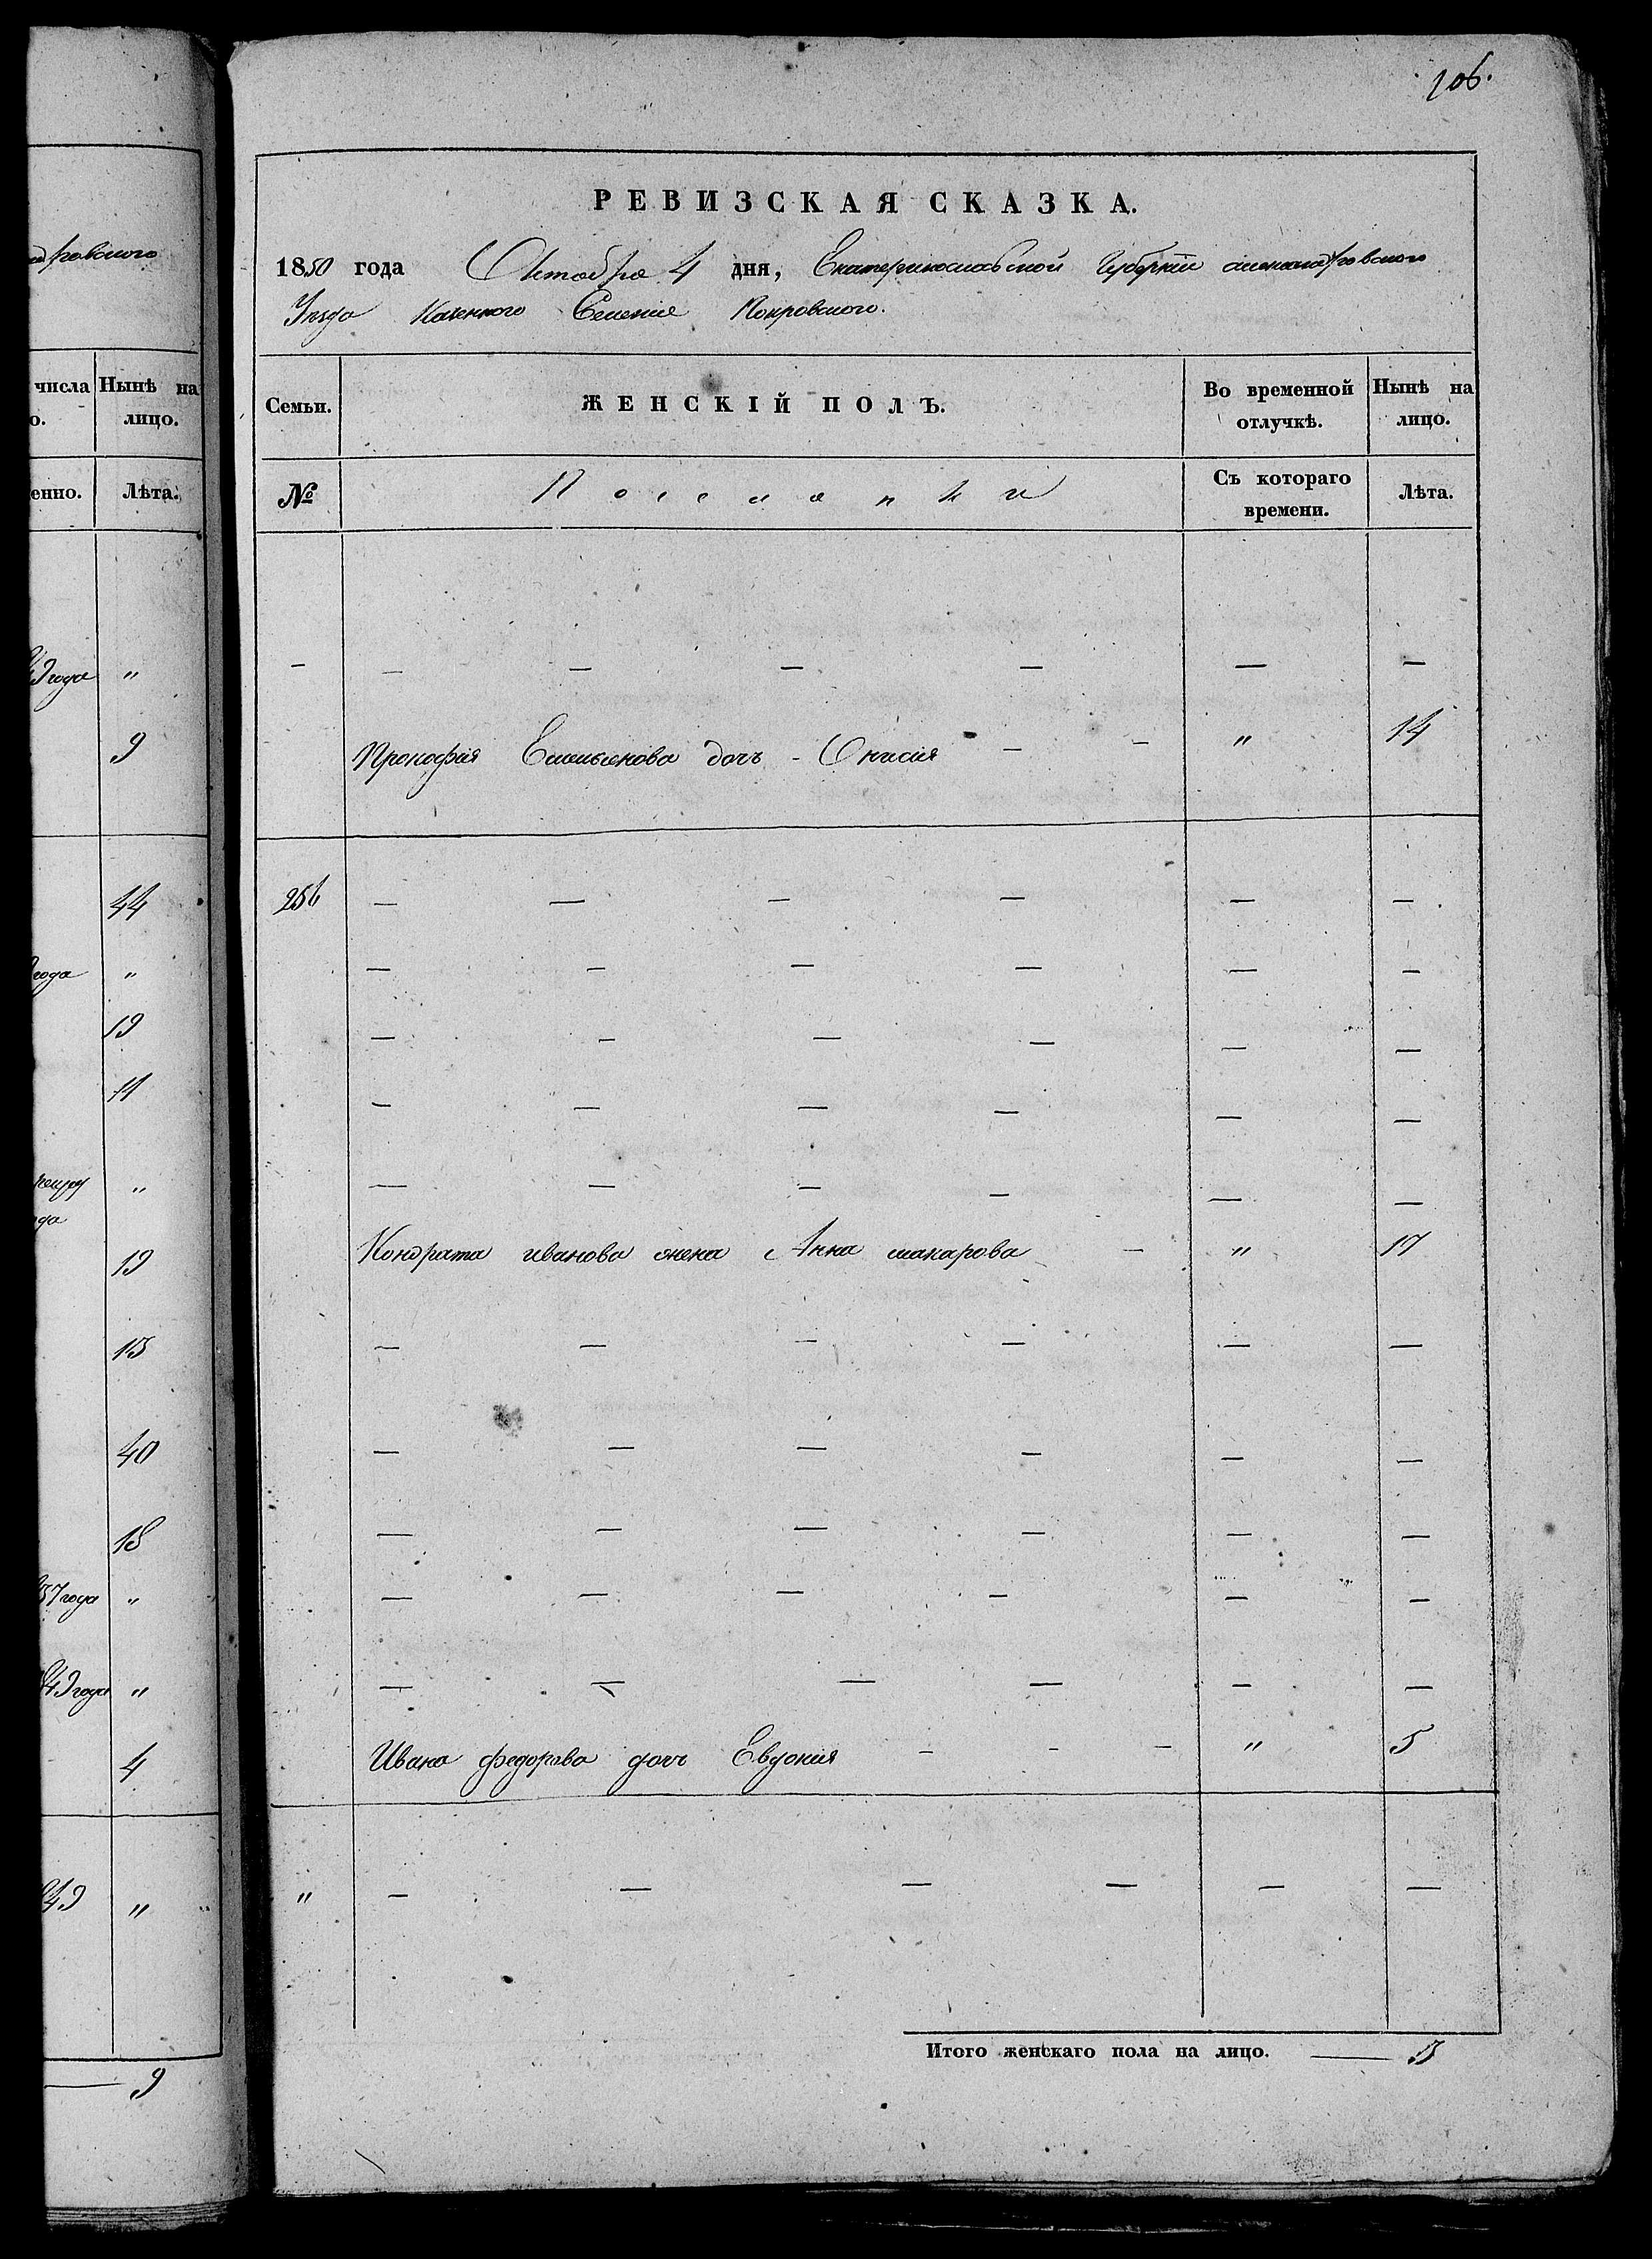 106.
РЕВИЗСКАЯ СКАЗКА.
1850 года Октобра 4 дня, Екатеринославской Губернии александровского
Уезда Казенного Селение Покровского.
Семьи. ЖЕНСКІЙ ПОЛЪ. Во временной отлучкѣ. Нынѣ на лицо.
№ Поселянки Съ котораго времени. Лѣта.
— — — — — — —
Прокофия Емельенова дочъ - Онисия — — " 14
256 — — — — — —
— — — — — —
— — — — — —
— — — — — —
— — — — — —
Кондрата иванова жена Анна макарова — " 17
— — — — — —
— — — — — —
— — — — — —
— — — — — —
— — — — — —
Ивана федорова дочъ Евдокия — — — " 5
" — — — — — —
Итого женскаго пола на лицо. — 3
числа Нынѣ на
о. лицо.
енно. Лѣта.
года "
9
44
года "
19
11
"
19
13
40
18
37 года "
49 года "
4
49 "
— 9